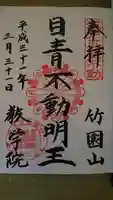 奉拝
竹園山
目青不動明王
教学院
平成三十一年
三月三十一日